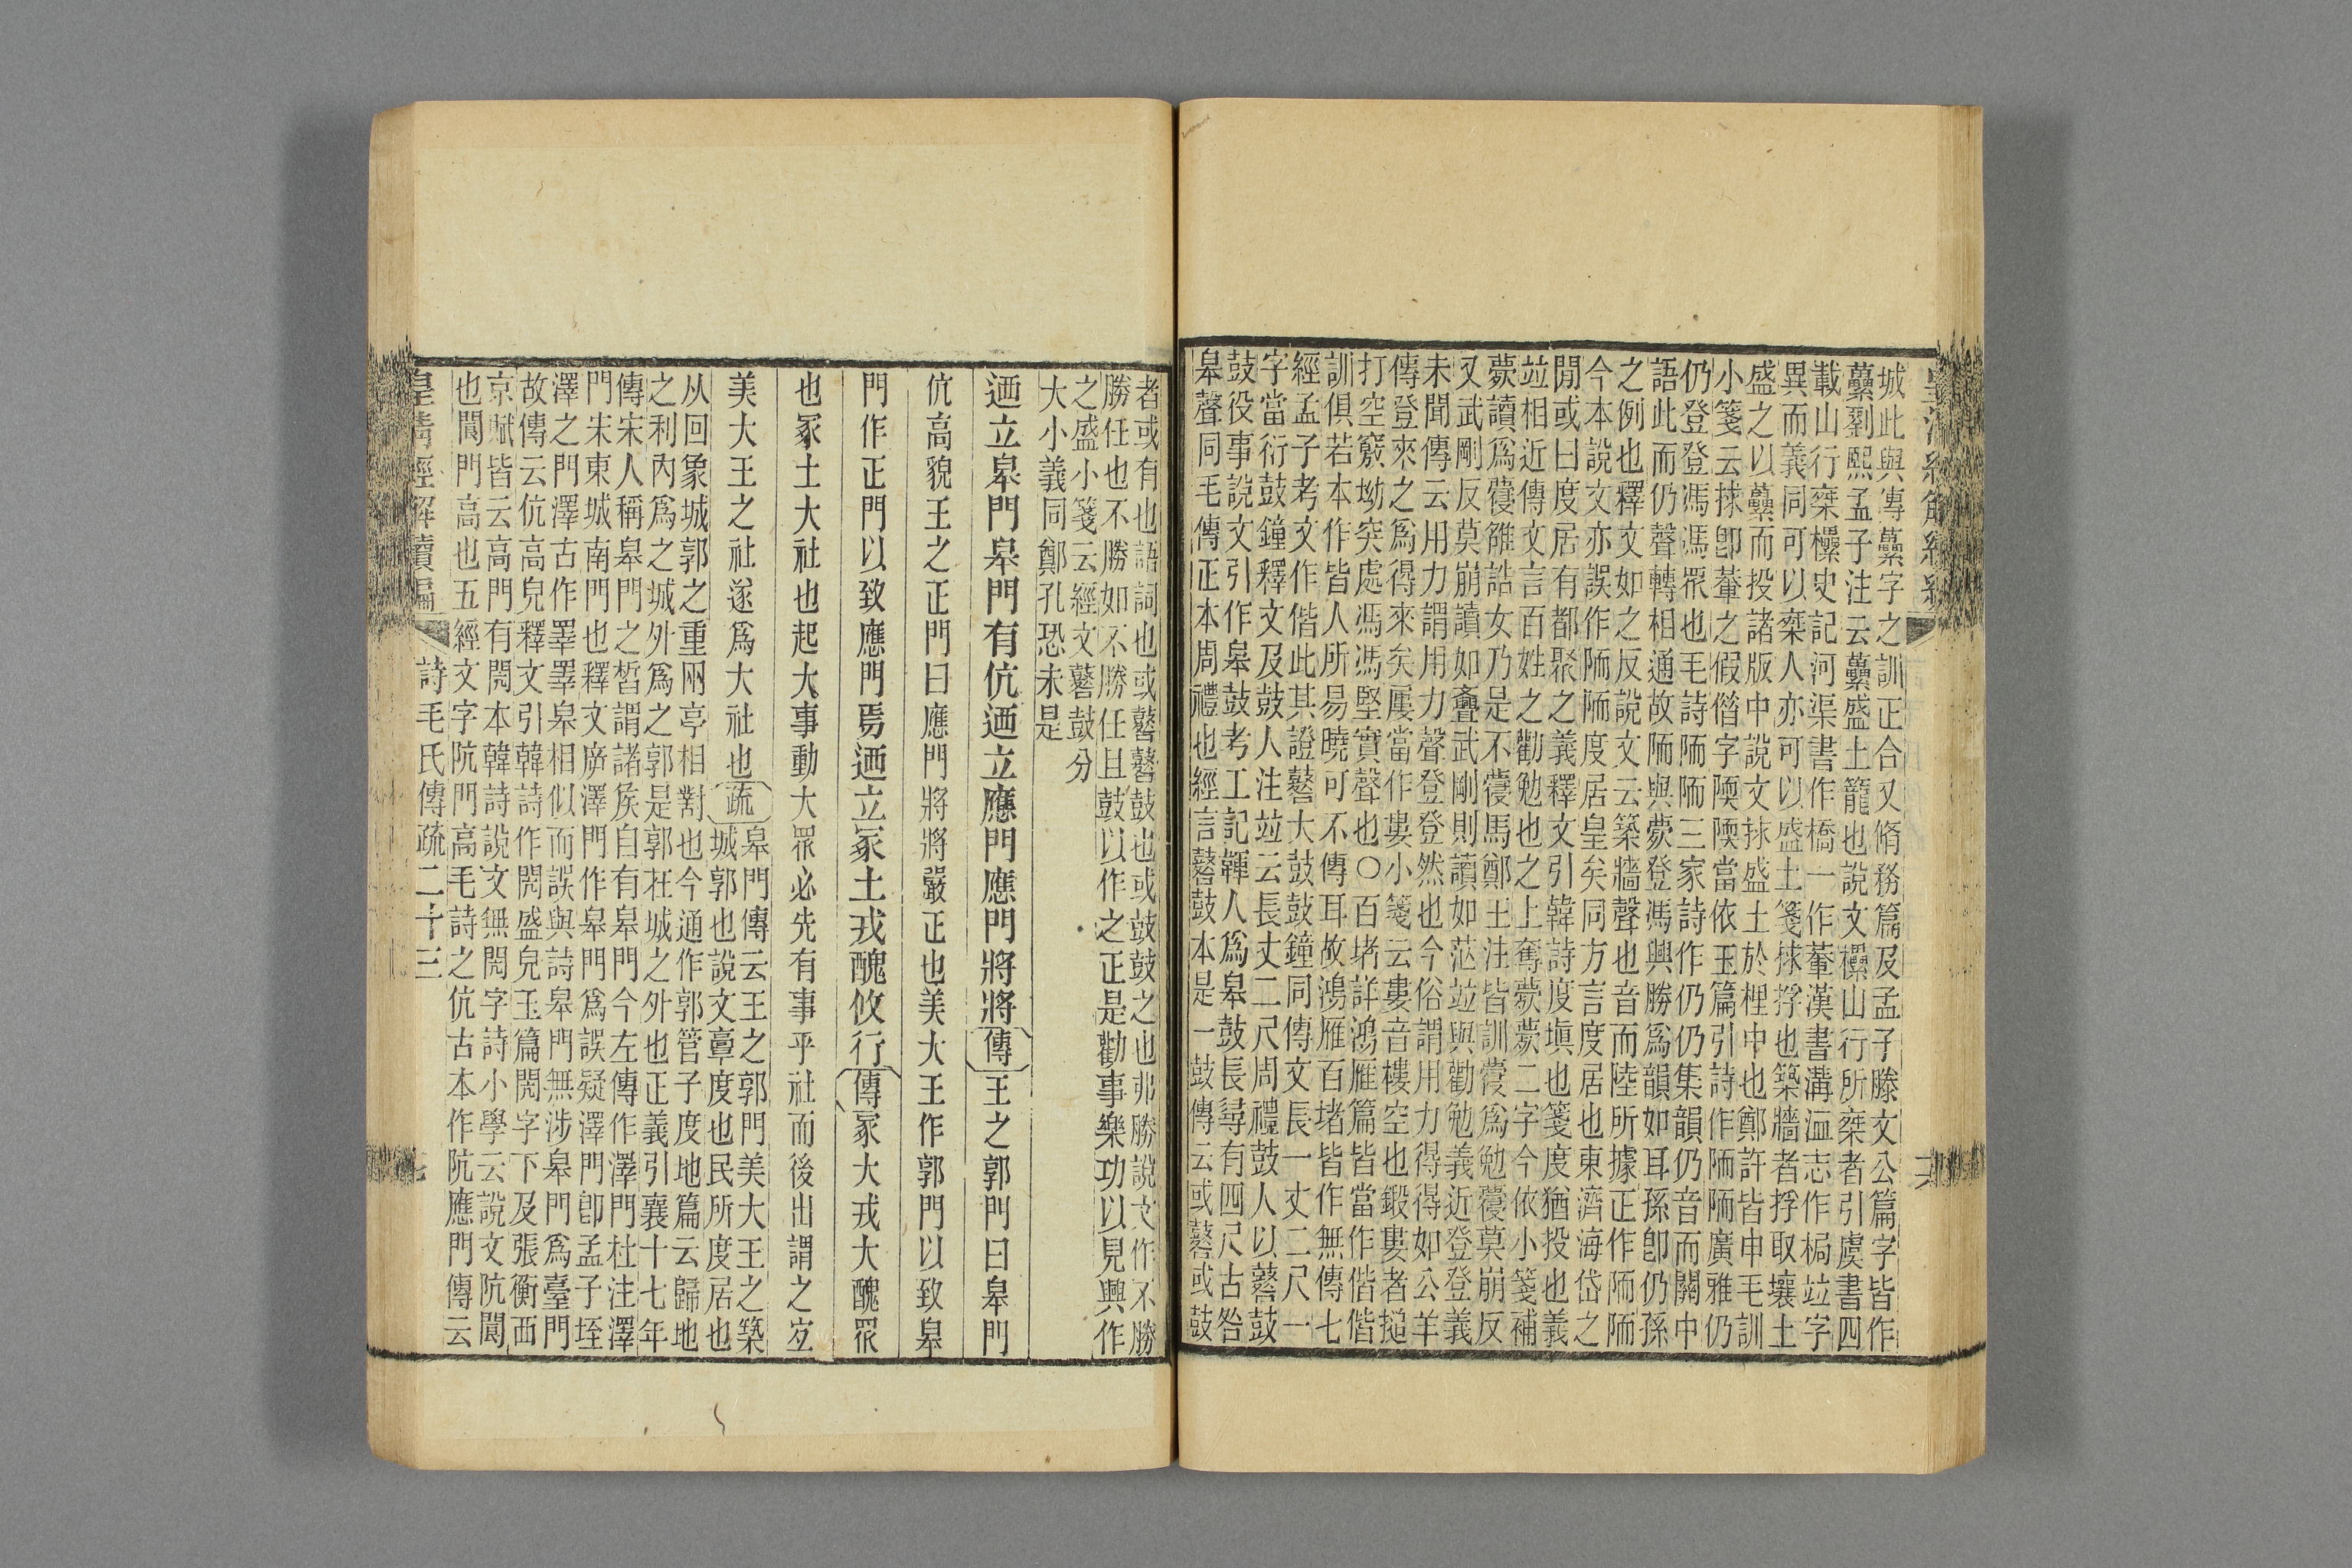 城此與傳虆字之訓正合又脩務篇及孟子滕文公篇字皆作
虆劉熙孟子注云虆盛土籠也說文欙山行所桒者引虞書四
載山行桒欙史記河渠書作橋一作輂漢書溝洫志作梮竝字
異而義同可以桒人亦可以盛土箋捄捊也築牆者捊取壤土
盛之以虆而投諸版中說文捄盛土於梩中也鄭許皆申毛訓
小箋云捄卽輂之假偕字陾陾當依玉篇引詩作陑陑廣雅仍
仍登登馮馮眾也毛詩陑陑三家詩作仍仍集韻仍音而關中
語此而仍聲轉相通故陑與薨登馮興勝爲韻如耳孫卽仍孫
之例也釋文如之反說文云築牆聲也音而陸所據正作陑陑
今本說文亦誤作陑陑度居皇矣同方言度居也東濟海岱之
閒或曰度居有都聚之義釋文引韓詩度塡也箋度猶投也義
竝相近傳文言百姓之勸勉也之上奪薨薨二字今依小箋補
薨讀爲薨雒誥女乃是不薨馬鄭王注皆訓薨爲勉薨莫崩反
又武剛反莫崩讀如瞢武剛則讀如茫竝與勸勉義近登登義
未聞傳云用力謂用力聲登登然也今俗謂用力得得如公羊
傳登來之爲得來矣屢當作婁小箋云婁音樓空也鍛婁者搥
打空竅坳突處馮馮堅實聲也○百堵詳鴻雁篇皆當作偕偕
訓俱若本作皆人所易曉可不傳耳故鴻雁百堵皆作無傳七
經孟子考文作偕此其證鼛大鼓鼓鐘同傳文長一丈二尺一
字當衍鼓鐘釋文及鼓人注竝云長丈二尺周禮鼓人以鼛鼓
鼓役事說文引作皋鼓考工記韗人爲皋鼓長尋有四尺古咎
皋聲同毛傳正本周禮也經言鼛鼓本是一鼓傳云或鼛或鼓
者或有也語詞也或鼛鼛鼓也或鼓鼓之也弗勝說文作不勝
勝任也不勝如不勝任且鼓以作之正是勸事樂功以見興作
之盛小箋云經文鼛鼓分
大小義同鄭孔恐未是
迺立皋門皋門有伉迺立應門應門將將傳王之郭門曰皋門
伉高貌王之正門曰應門將將嚴正也美大王作郭門以致皋
門作正門以致應門焉迺立冢土戎醜攸行傳冢大戎大醜眾
也冢土大社也起大事動大眾必先有事乎社而後出謂之宜
美大王之社遂爲大社也疏皋門傳云王之郭門美大王之築
城郭也說文𩫖度也民所度居也
从回象城郭之重兩亭相對也今通作郭管子度地篇云歸地
之利內爲之城外爲之郭是郭在城之外也正義引襄十七年
傳宋人稱皋門之晳謂諸矦自有皋門今左傳作澤門杜注澤
門宋東城南門也釋文廣澤門作皋門爲誤疑澤門卽孟子垤
澤之門澤古作睪睪皋相似而誤與詩皋門無涉皋門爲臺門
故傳云伉高皃釋文引韓詩作閌盛皃玉篇閌字下及張衡西
京賦皆云高門有閌本韓詩說文無閌字詩小學云說文阬閬
也閬門高也五經文字阬門高毛詩之伉古本作阬應門傳云
皇清經解續編 詩毛氏傳疏二十三